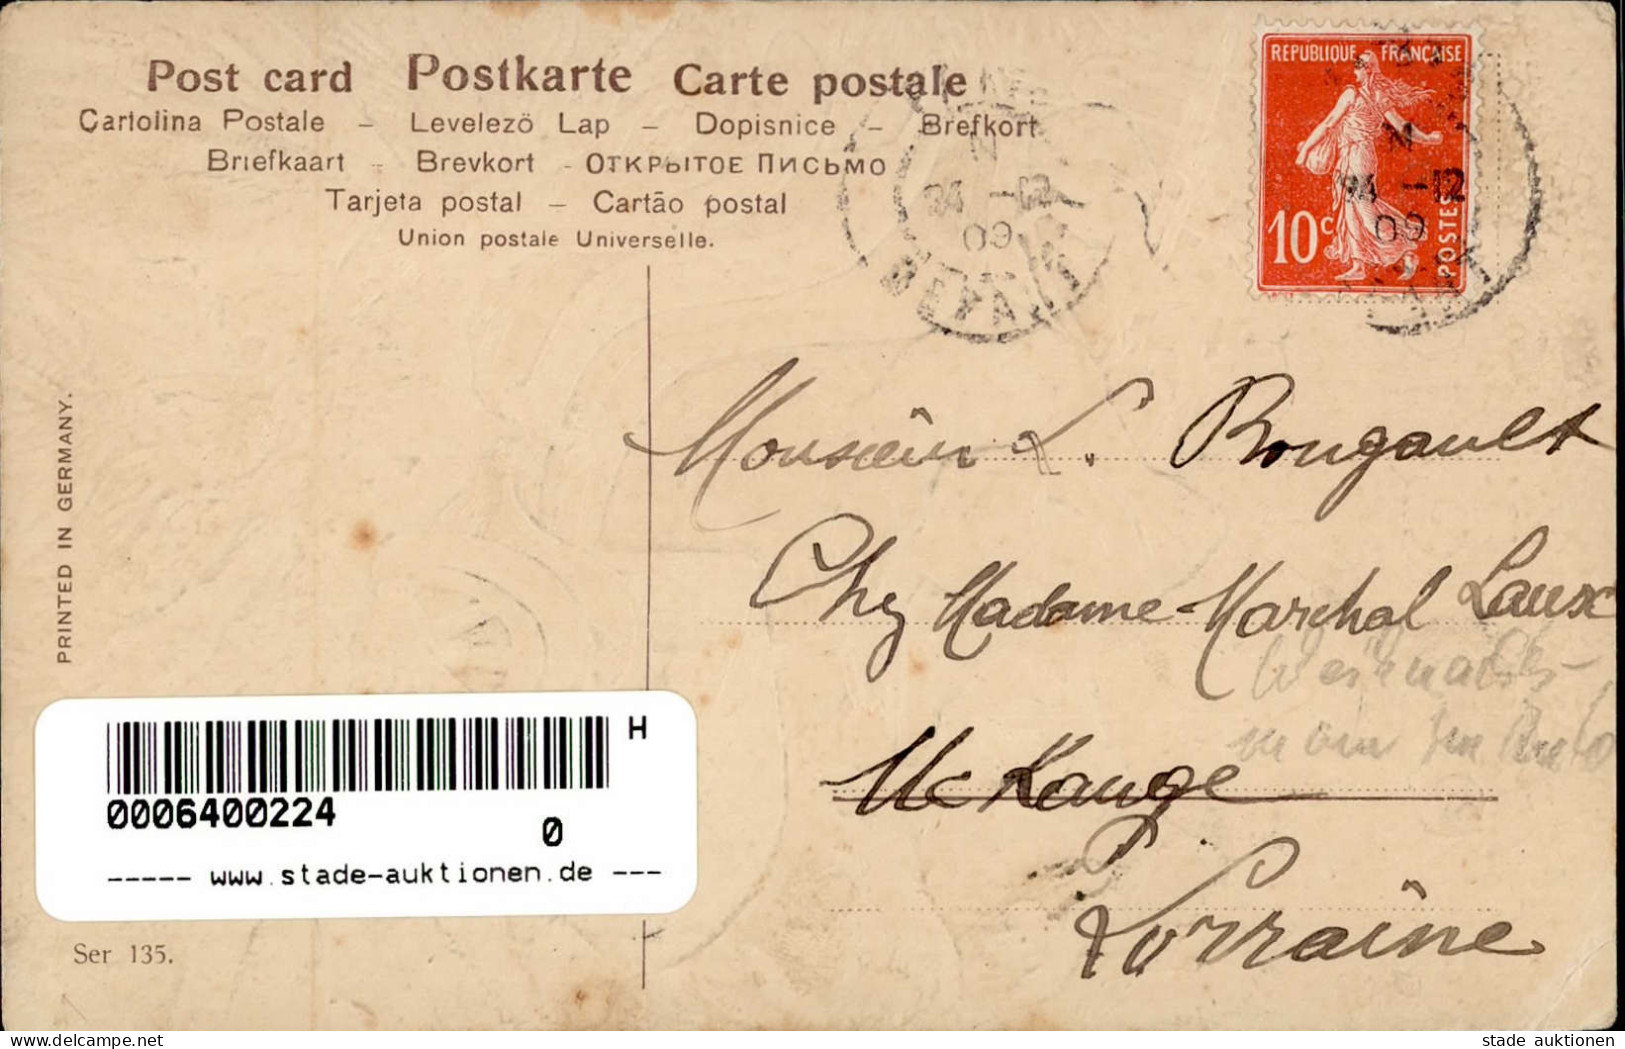 Post card Postkarte Carte postale
Cartolina Postale – Levelezö Lap – Dopisnice – Brefkort
Briefkaart – Brevkort – ОТКРЫТОЕ ПИСЬМО
Tarjeta postal – Cartão postal
Union postale Universelle.
REPUBLIQUE FRANÇAISE
10c
POSTES
N
24 -12
09
N
24 -12
09
PRINTED IN GERMANY.
Monsieur L. Rougault
Chez Madame Marchal Laux
Uckange
Lorraine
H
0006400224
0
----- www.stade-auktionen.de ---
Ser 135.
stade auktionen